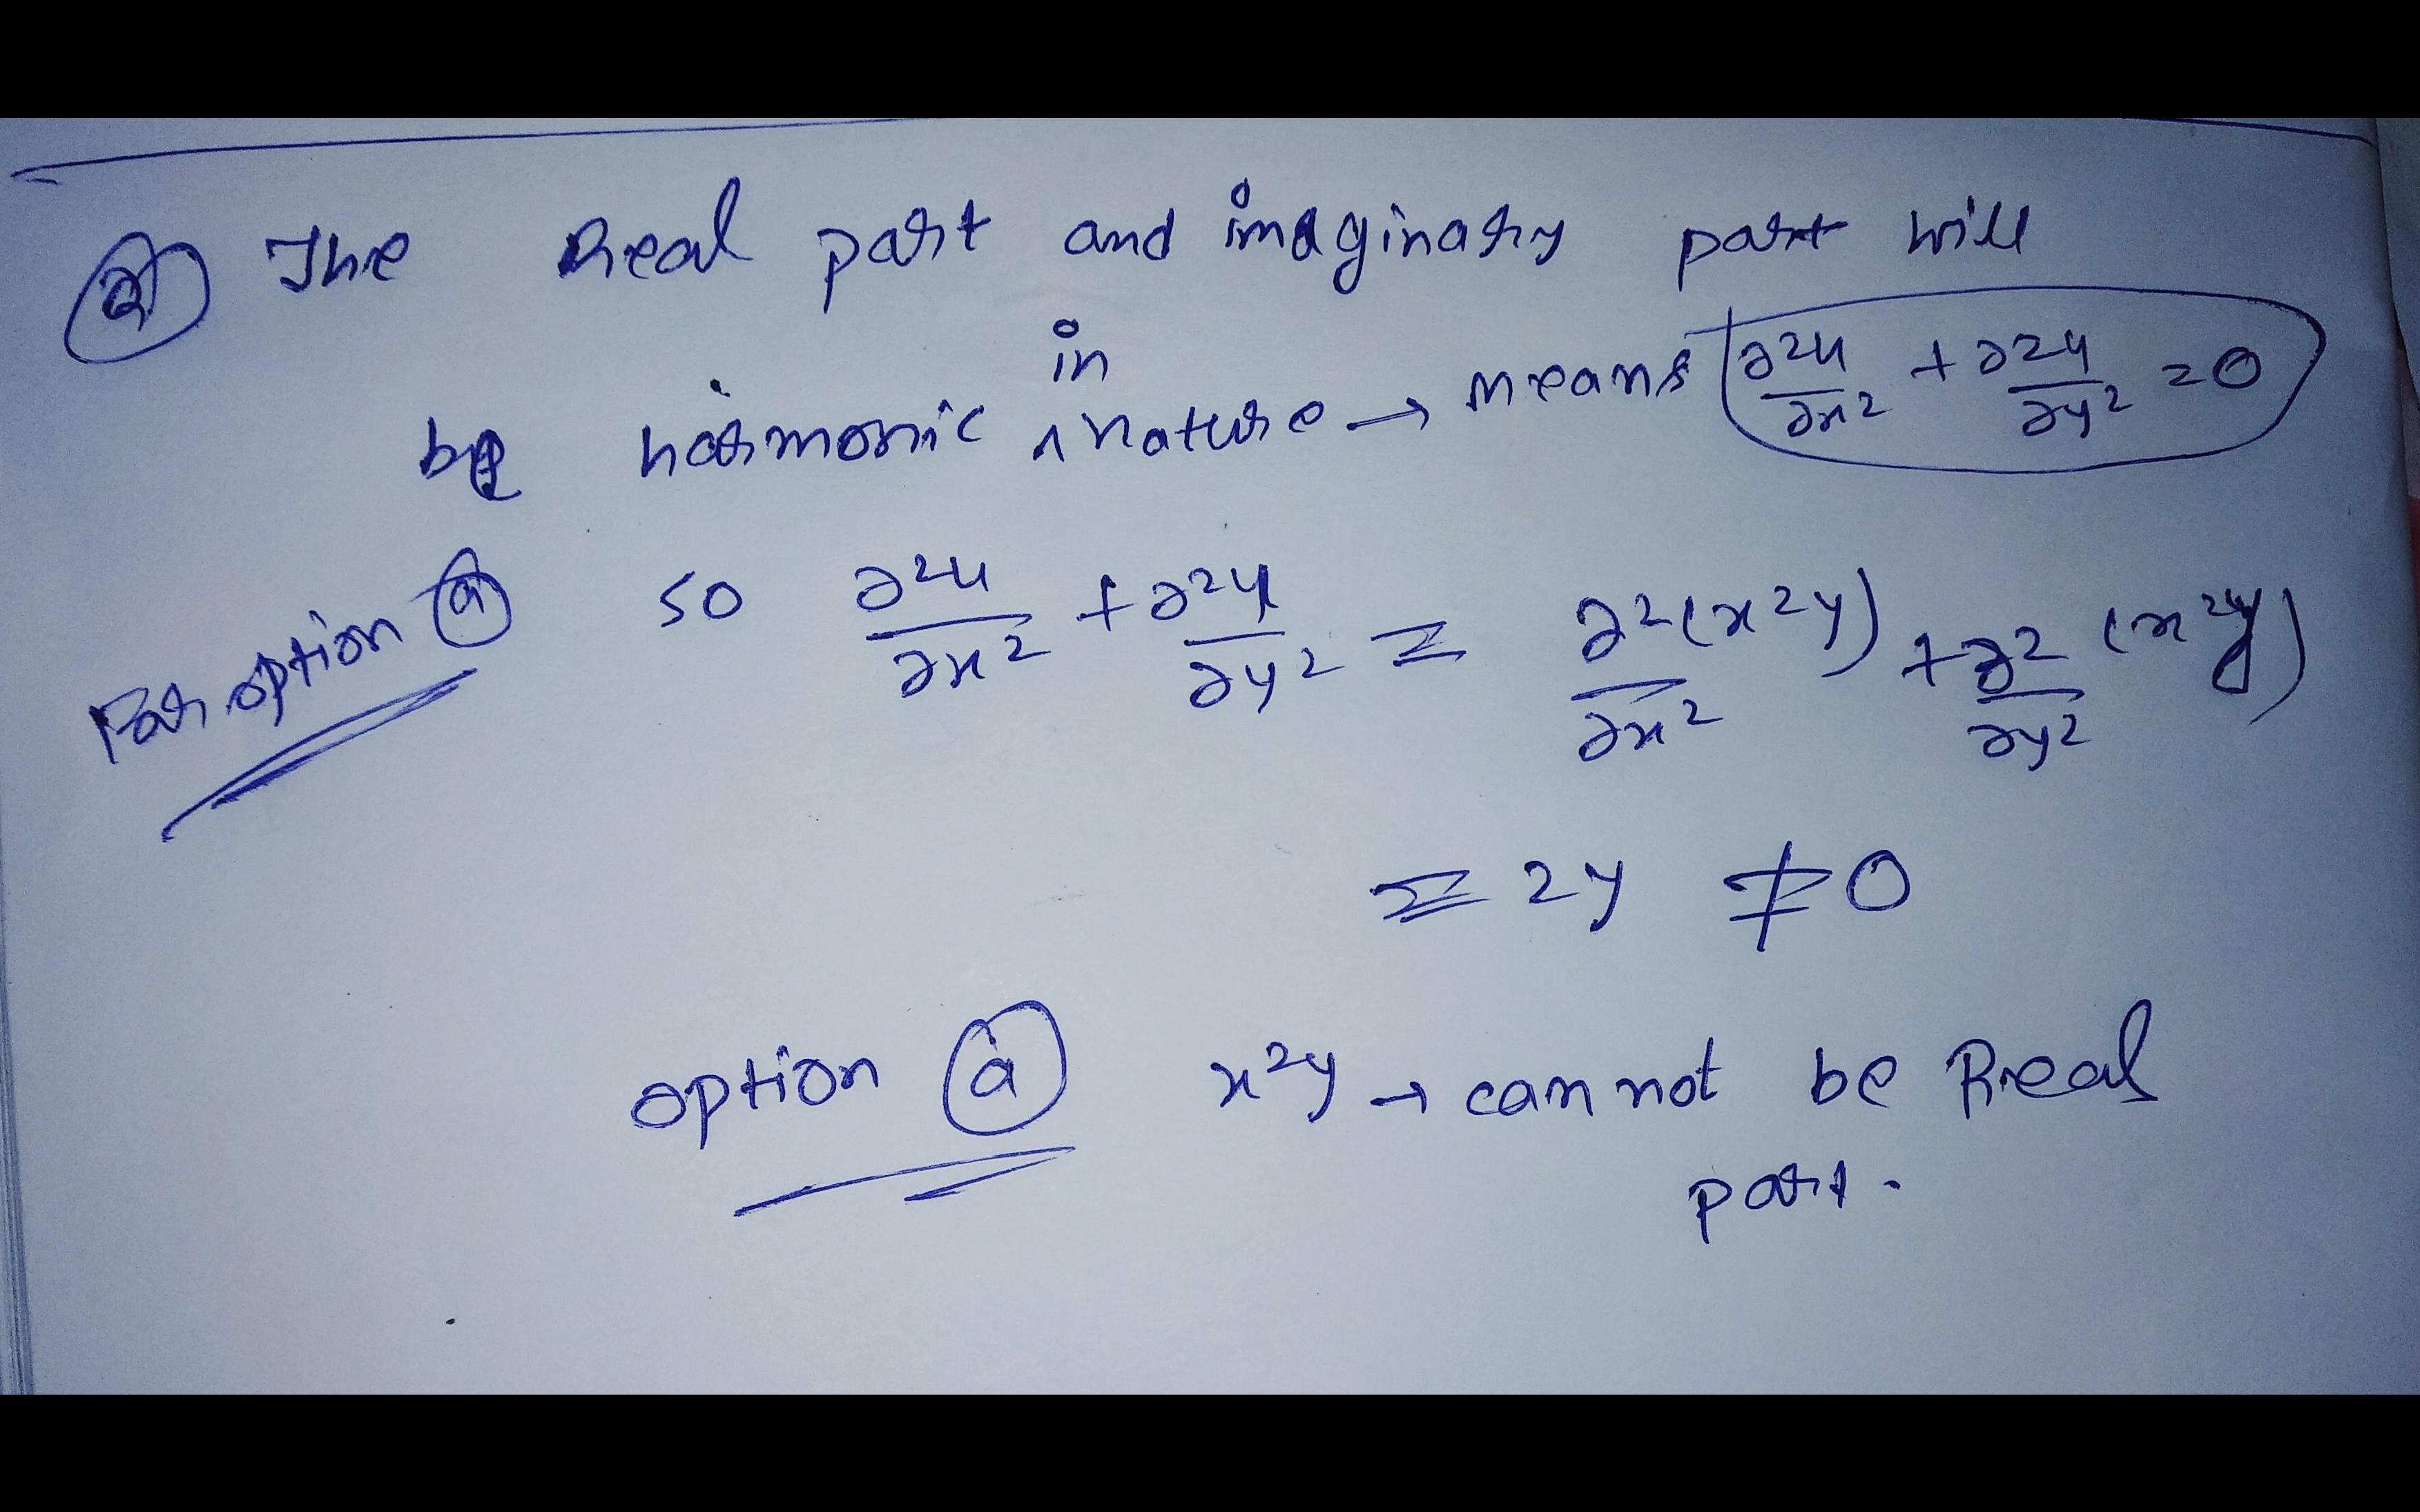 ② The Real part and imaginary part will
be harmonic in nature → means ∂²u/∂x² + ∂²u/∂y² = 0
For option ⓐ so ∂²u/∂x² + ∂²u/∂y² = ∂²(x²y)/∂x² + ∂²/∂y² (x²y)
= 2y ≠ 0
option ⓐ x²y → cannot be Real
part.